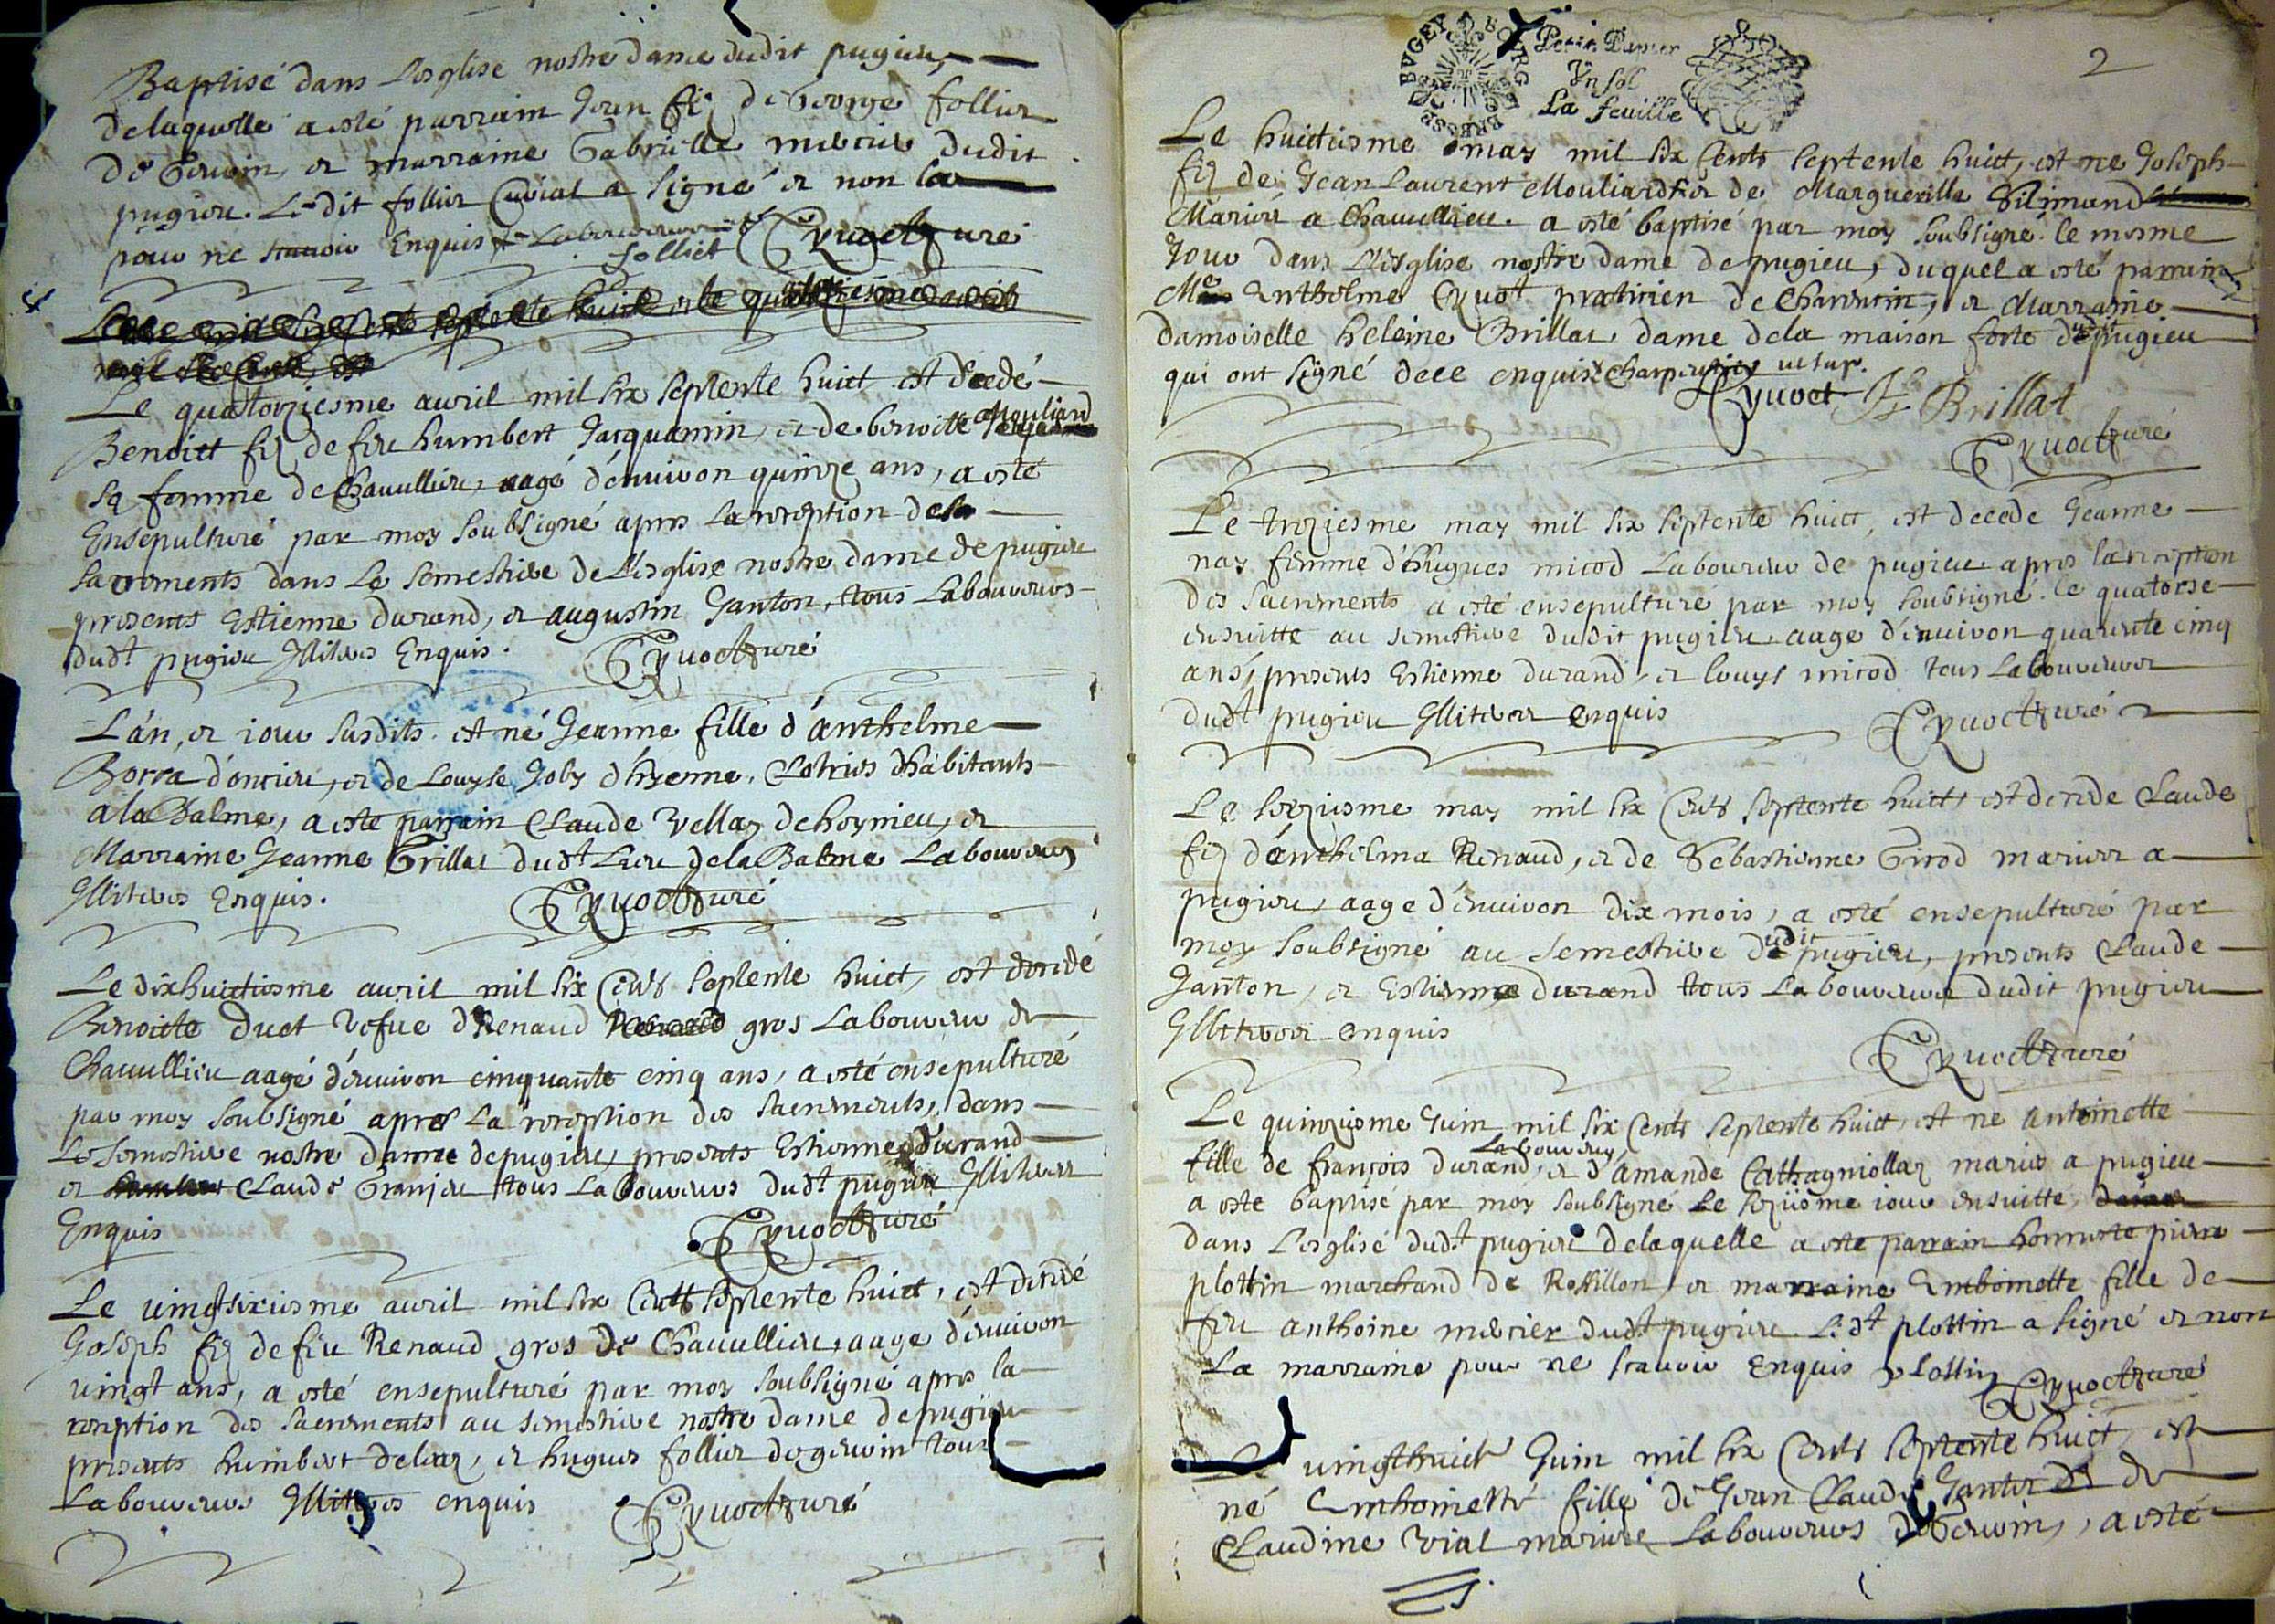 Baptisé dans L'esglise nostre dame dudit pugieu,
delaquelle a esté parrain Jean fis de George follier
de Gervoin, et marraine Gabrielle mercier dudit
pugieu. Le dit follier a signé et non la
pour ne scavoir Enquis Laboureurs
follièt Cyuoct Curé
Le quatorziesme avril mil six septente huict est decedé
Benoict fis de feu humbert Jacquamin, et de benoitte Mouliard
sa femme de Chavullieu, aagé d'enuiron quinze ans, a esté
Ensepulturé par moy soubsigné apres la reception de
sacrements dans Le semestiere de L'esglise nostre dame de pugieu
presents Estienne durand, et augustin Janton, tous Laboureurs
dudt pugieu Jllitères Enquis. Cyuoct Curé
L'an, et iour susdits est né Jeanne fille d'anthelme
Borra d'oncieu, et de Louyse Joly d'hyenne, habitants
a la Balme, a esté parrain Claude Vellaz de hoynieu, et
Marraine Jeanne Grillat dudt Lieu dela Balme Laboureurs
Jllitères Enquis. Cyuoct Curé
Le dixhuictiesme auril mil six Cents septente huict, est decedé
Benoicte duct Vefue d'Renaud gros Laboureur de
Chauullieu aagé d'enuiron cinquante cinq ans, a esté ensepulturé
par moy soubsigné apres La reception des sacrements, dans
Le semestiere nostre dame de pugieu, presents Estienne durand
et Claude Granjeu tous Laboureurs dudt pugieu Jlliterez
Enquis Cyuoct Curé
Le uingtsixiesme auril mil six Cents septente huict, est decedé
Joseph fis de feu Renaud gros de Chauullieu, aage d'enuiron
uingt ans, a esté ensepulturé par moy soubsigné apres la
reception des sacrements au semestiere nostre dame de pugieu
presents humbert delaz, et hugues follier de geruoin tous
Laboureurs Jllitères enquis Cyuoct Curé
BVGEY BOVRG BRESSE
Petit Papier
Vn sol
La feuille
2
Le huictiesme may mil six Cents septente huict, est ne Joseph
fis de Jean Laurent Mouliard et de Marguerille Silimand
Mariez a Chauullieu. a esté baptisé par moy soubsigné le mesme
Jour dans L'esglise nostre dame de pugieu, duquel a esté parrain
Me Anthelme Cyuot praticien de Charancin, et Marraine
damoiselle heleine Brillat dame dela maison forte dudit pugieu
qui ont signé de ce enquis ut sup.
Cyuoct H Brillat
Cyuoct Curé
Le treziesme may mil six septente huict, est decede Jeanne
nay femme d'hugues micod Laboureur de pugieu apres la reception
des sacrements a esté ensepulturé par moy soubsigné le quatorse
ensuitte au semestiere dudit pugieu, aage d'enuiron quarente cinq
ans, presents Estienne durand, et louys micod tous Laboureurs
dudt pugieu Jlliterez enquis Cyuoct Curé
Le seziesme may mil six Cents septente huict, est decede Claude
fis d'anthelma Renaud, et de Sebastienne Girod mariez a
pugieu, aage d'enuiron dix mois, a esté ensepulturé par
moy soubsigné au semestiere dudit pugieu, presents Claude
Janton, et Estienne durand tous Laboureurs dudit pugieu
Jlliterez enquis
Cyuoct Curé
Le quinziesme Juin mil six Cents septente huict, est ne Antoinette
fille de françois durand, Laboureur, et d'amande Cathagniollaz mariés a pugieu
a esté baptisé par moy soubsigné Le seziesme iour ensuitte
dans L'esglise dudt pugieu delaquelle a esté parrain honneste pierre
plottin marchand de Rossillon, et marraine Anthoinette fille de
feu anthoine mercier dudt pugieu. Ledt plottin a signé et non
La marraine pour ne scauoir Enquis plottin
Cyuoct Curé
Le uingthuict Juin mil six Cents septente huict, est
né Anthoinette fille de Jean Claude Janton et de
Claudine Vial mariez Laboureurs de Geruoin, a esté